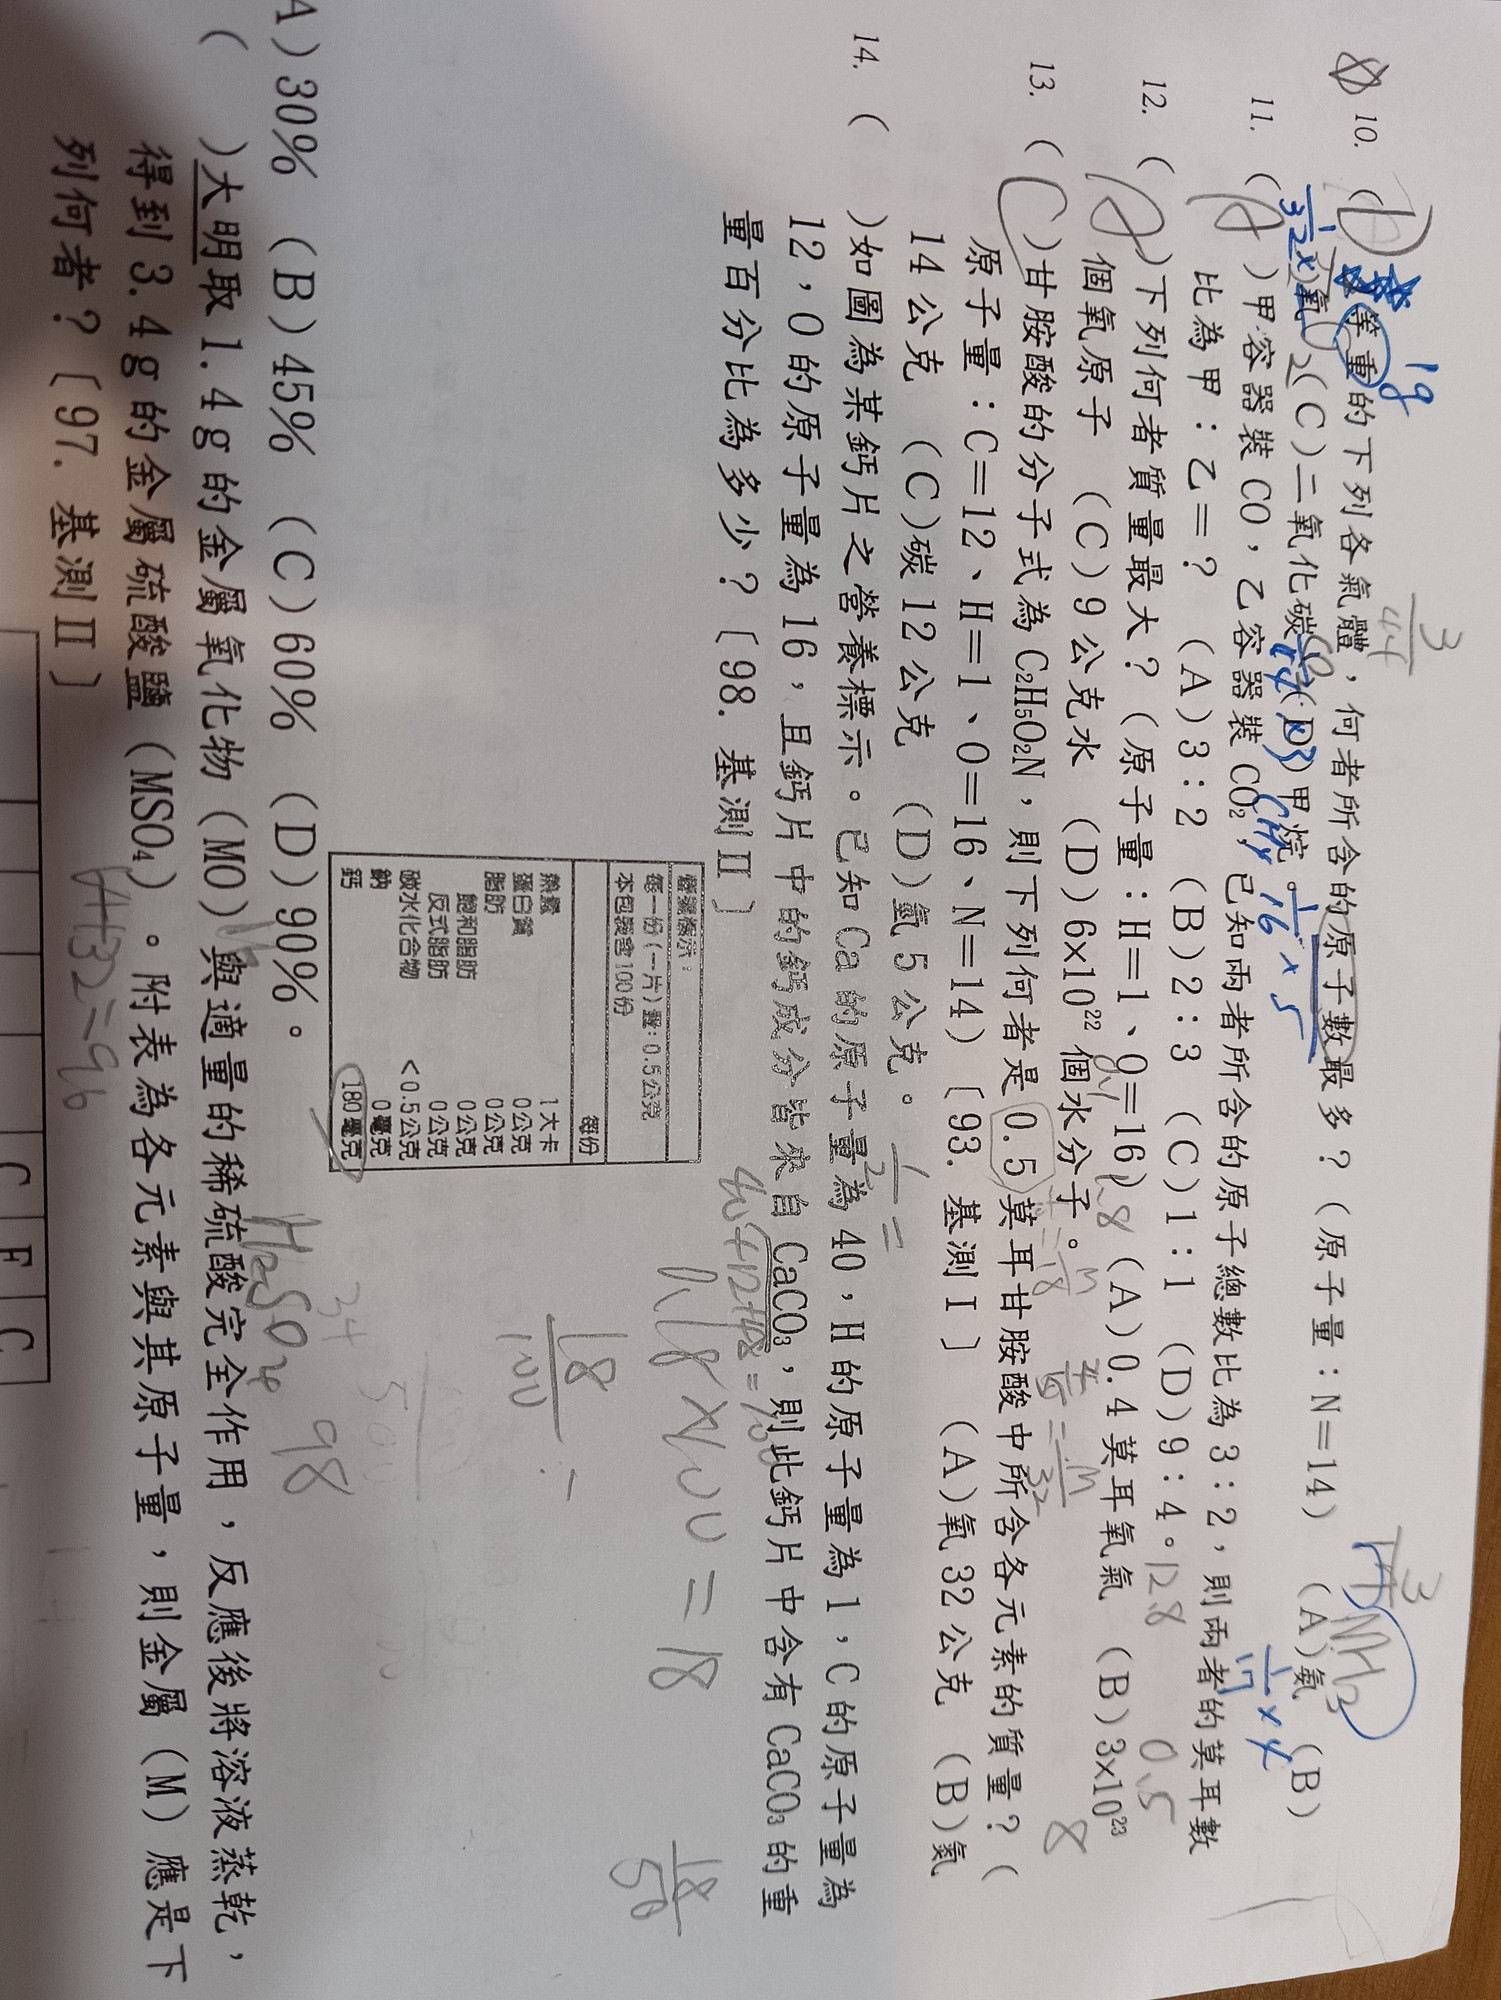 10. (D)等重的下列各氣體，何者所含的原子數最多？(原子量：N=14) (A)氨 (B)
氧 (C)二氧化碳 (D)甲烷。
1g
3/44
NH3
1/17×4
CH4
1/16×5
11. (A)甲容器裝CO，乙容器裝CO₂，已知兩者所含的原子總數比為3：2，則兩者的莫耳數
比為甲：乙=？ (A)3：2 (B)2：3 (C)1：1 (D)9：4。
12.8
0.5
12. (A)下列何者質量最大？(原子量：H=1、O=16) (A)0.4莫耳氧氣 (B)3x10²³
個氧原子 (C)9公克水 (D)6x10²²個水分子。
8
13. (C)甘胺酸的分子式為C₂H₅O₂N，則下列何者是0.5莫耳甘胺酸中所含各元素的質量？(
原子量：C=12、H=1、O=16、N=14)〔93.基測Ⅰ〕 (A)氧32公克 (B)氮
14公克 (C)碳12公克 (D)氫5公克。
14. ( )如圖為某鈣片之營養標示。已知Ca的原子量為40，H的原子量為1，C的原子量為
12，O的原子量為16，且鈣片中的鈣成分皆來自CaCO₃，則此鈣片中含有CaCO₃的重
量百分比為多少？〔98.基測Ⅱ〕
0.18×100=18
18/100
18/50
營養標示：
每一份(一片)量：0.5公克
本包裝含100份
每份
熱量 1大卡
蛋白質 0公克
脂肪 0公克
飽和脂肪 0公克
反式脂肪 0公克
碳水化合物 <0.5公克
鈉 0毫克
鈣 180毫克
A)30% (B)45% (C)60% (D)90%。
H2SO4 98
( )大明取1.4g的金屬氧化物(MO)與適量的稀硫酸完全作用，反應後將溶液蒸乾，
得到3.4g的金屬硫酸鹽(MSO₄)。附表為各元素與其原子量，則金屬(M)應是下
列何者？〔97.基測Ⅱ〕
C F C